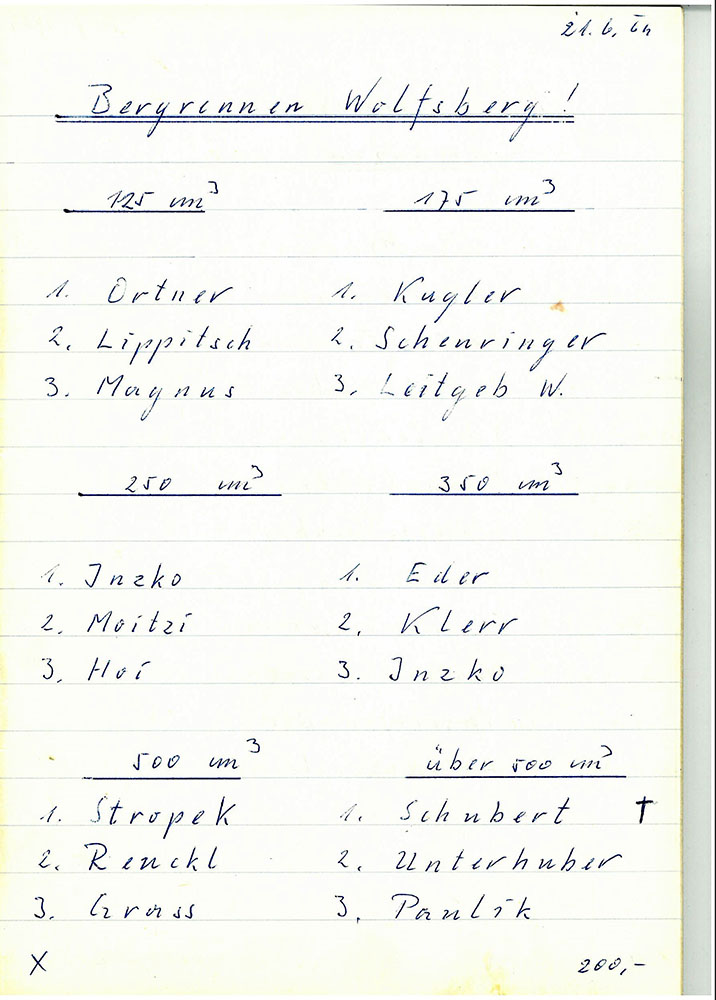 21. 6. 64
Bergrennen Wolfsberg!
125 cm³ 175 cm³
1. Ortner 1. Kugler
2. Lippitsch 2. Schenringer
3. Magnus 3. Leitgeb W.
250 cm³ 350 cm³
1. Inzko 1. Eder
2. Moitzi 2. Klerr
3. Hoi 3. Inzko
500 cm³ über 500 cm³
1. Stropek 1. Schubert †
2. Renckl 2. Unterhuber
3. Grass 3. Paulik
X 200,-